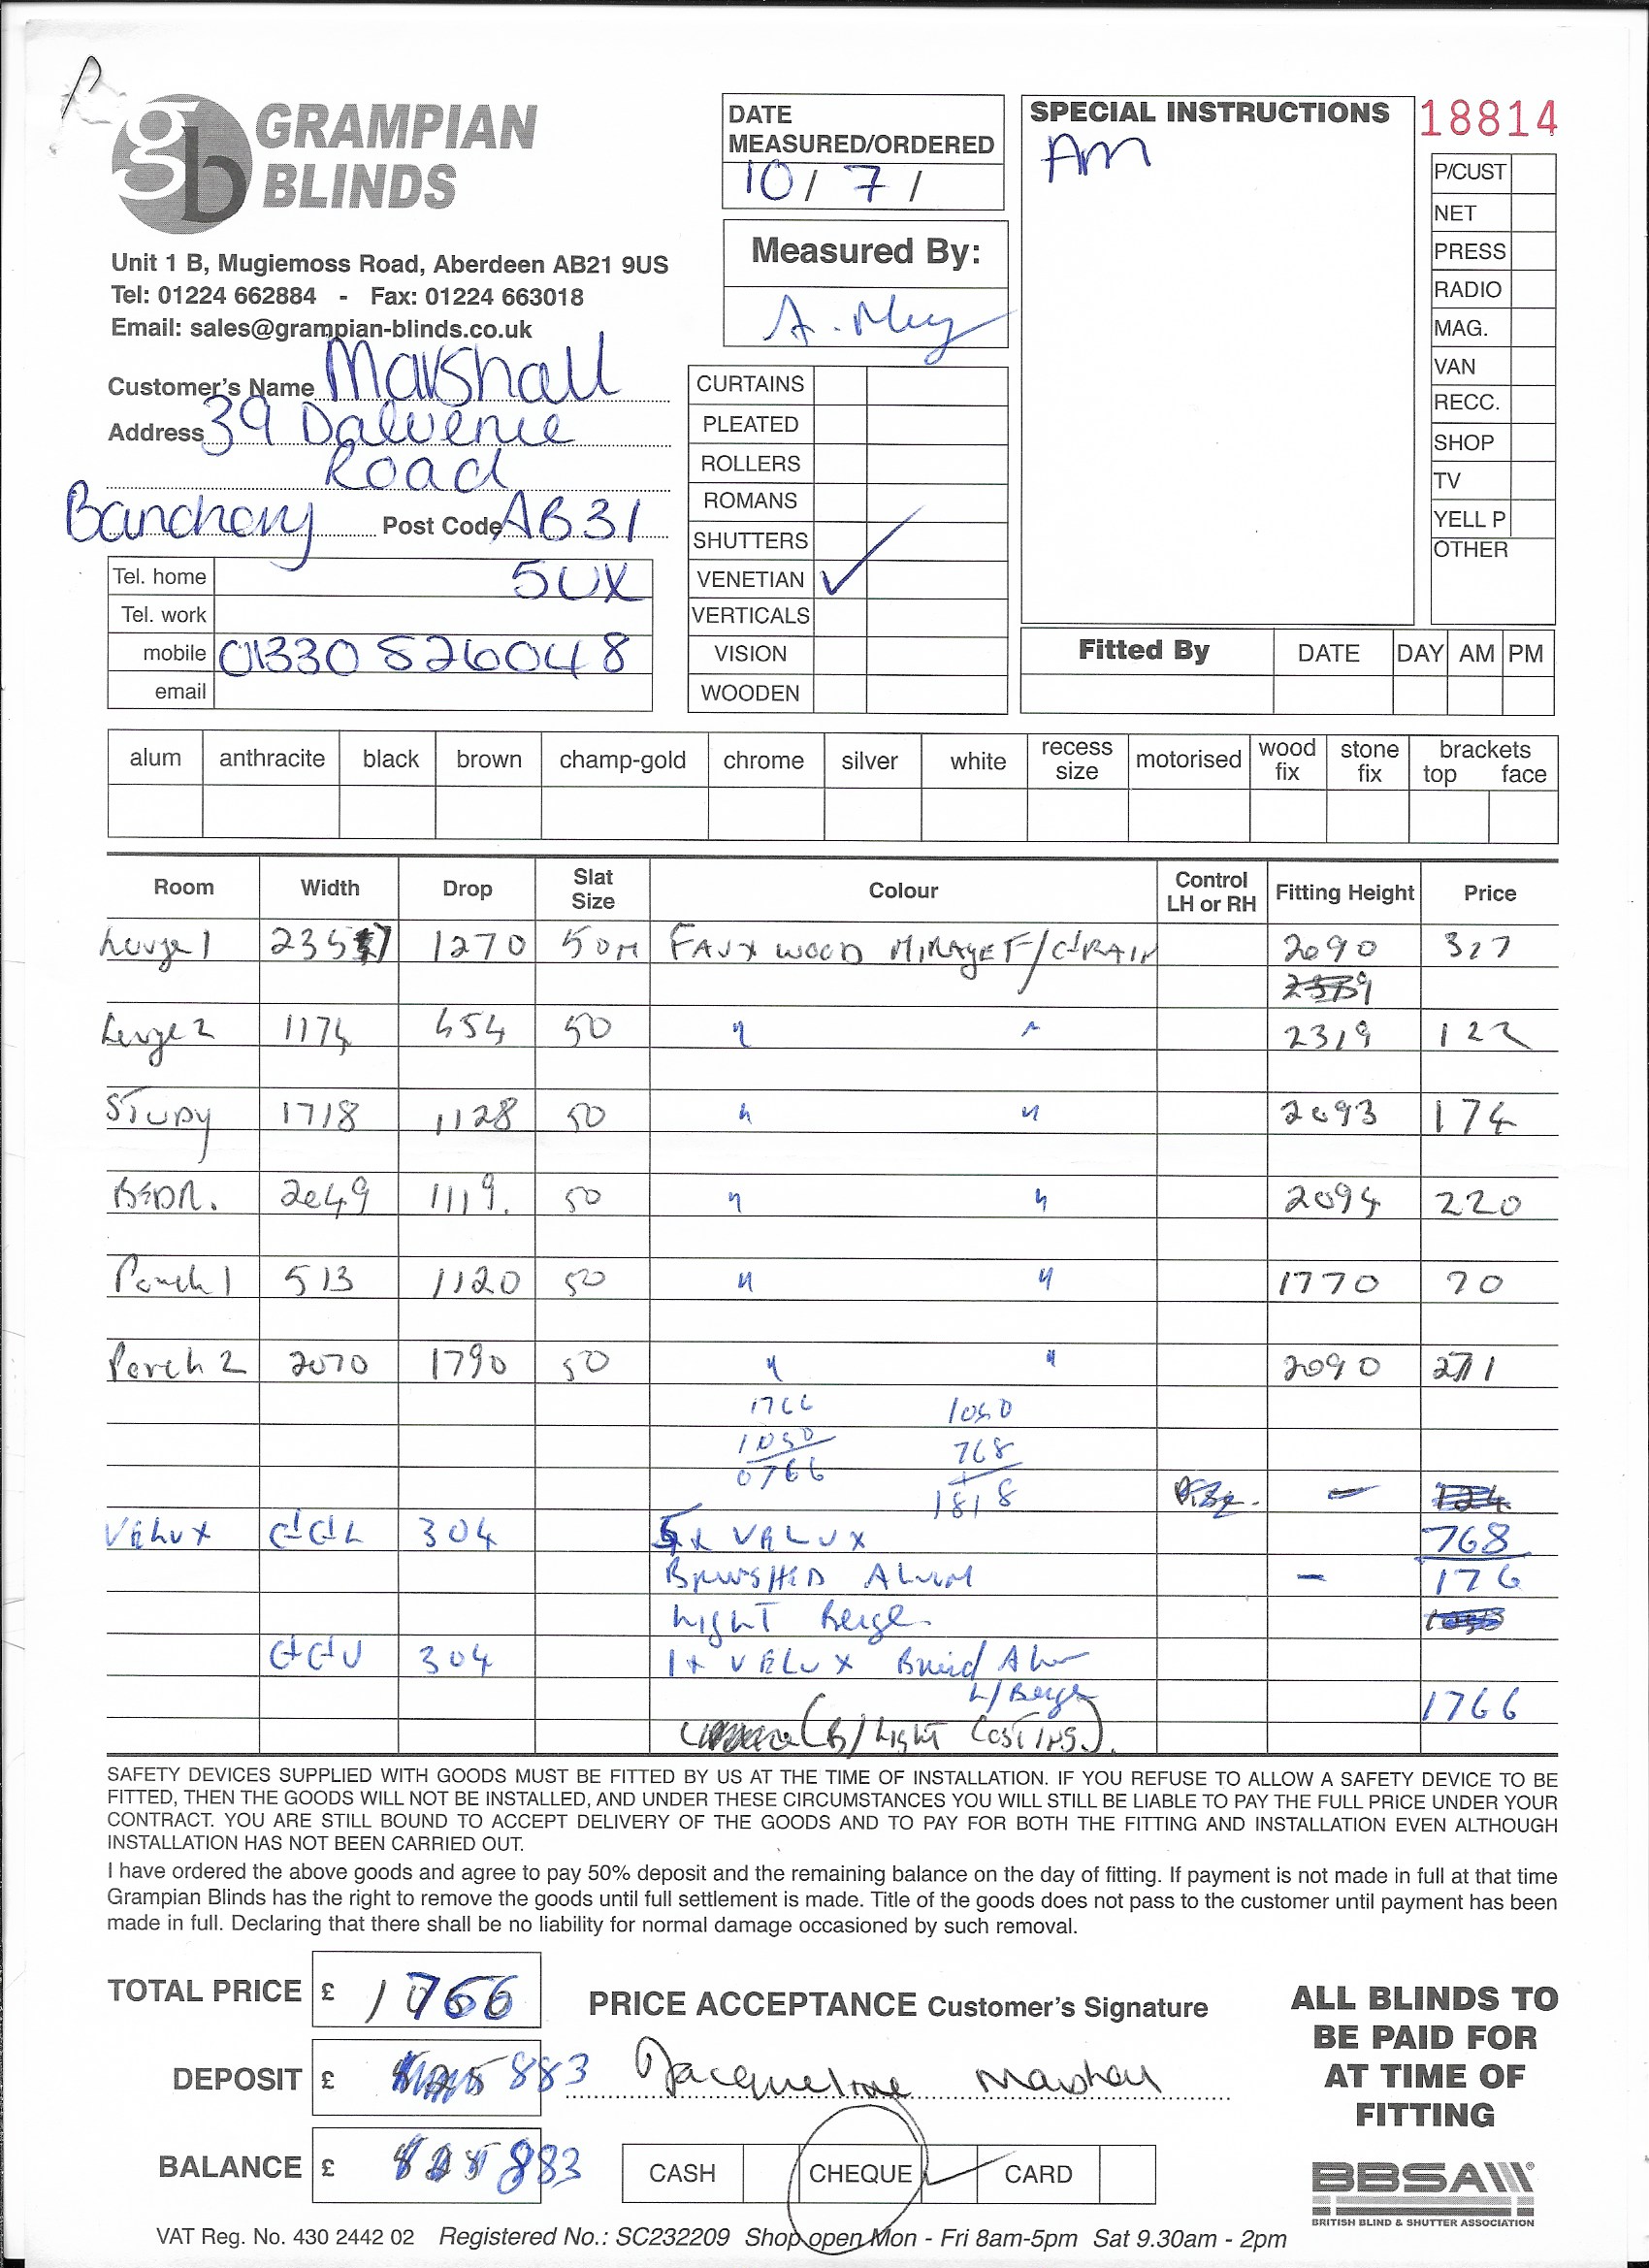 GRAMPIAN
BLINDS
gb
Unit 1 B, Mugiemoss Road, Aberdeen AB21 9US
Tel: 01224 662884 - Fax: 01224 663018
Email: sales@grampian-blinds.co.uk
Customer's Name Marshall
Address 39 Dalvenie
Road
Banchory Post Code AB31
Tel. home 5UX
Tel. work
mobile 01330 826048
email
DATE
MEASURED/ORDERED
10/ 7 /
Measured By:
CURTAINS
PLEATED
ROLLERS
ROMANS
SHUTTERS
VENETIAN ✓
VERTICALS
VISION
WOODEN
SPECIAL INSTRUCTIONS
Am
18814
P/CUST
NET
PRESS
RADIO
MAG.
VAN
RECC.
SHOP
TV
YELL P
OTHER
Fitted By DATE DAY AM PM
alum anthracite black brown champ-gold chrome silver white recess size motorised wood fix stone fix brackets top face
Room Width Drop Slat Size Colour Control LH or RH Fitting Height Price
Lounge 1 2357 1270 50M FAUX WOOD MIRAGE F/GRAIN 2090 327
Lounge 2 1174 454 50 " " 2319 122
STUDY 1718 1128 50 " " 2093 174
BEDR. 2049 1119. 50 " " 2094 220
Porch 1 513 1120 50 " " 1770 70
Porch 2 2070 1790 50 " " 2090 271
1766 1050
1050 768
0766 1818
VELUX GGL 304 5x VELUX 768
BRUSHED ALUM - 176
Light Beige
GGU 304 1x VELUX
L/Beige
1766
(B/Light COSTING.)
SAFETY DEVICES SUPPLIED WITH GOODS MUST BE FITTED BY US AT THE TIME OF INSTALLATION. IF YOU REFUSE TO ALLOW A SAFETY DEVICE TO BE
FITTED, THEN THE GOODS WILL NOT BE INSTALLED, AND UNDER THESE CIRCUMSTANCES YOU WILL STILL BE LIABLE TO PAY THE FULL PRICE UNDER YOUR
CONTRACT. YOU ARE STILL BOUND TO ACCEPT DELIVERY OF THE GOODS AND TO PAY FOR BOTH THE FITTING AND INSTALLATION EVEN ALTHOUGH
INSTALLATION HAS NOT BEEN CARRIED OUT.
I have ordered the above goods and agree to pay 50% deposit and the remaining balance on the day of fitting. If payment is not made in full at that time
Grampian Blinds has the right to remove the goods until full settlement is made. Title of the goods does not pass to the customer until payment has been
made in full. Declaring that there shall be no liability for normal damage occasioned by such removal.
TOTAL PRICE £ 1766
PRICE ACCEPTANCE Customer's Signature
DEPOSIT £ 883 Jacqueline Marshall
BALANCE £ 883
CASH CHEQUE ✓ CARD
ALL BLINDS TO
BE PAID FOR
AT TIME OF
FITTING
BBSA
BRITISH BLIND & SHUTTER ASSOCIATION
VAT Reg. No. 430 2442 02 Registered No.: SC232209 Shop open Mon - Fri 8am-5pm Sat 9.30am - 2pm